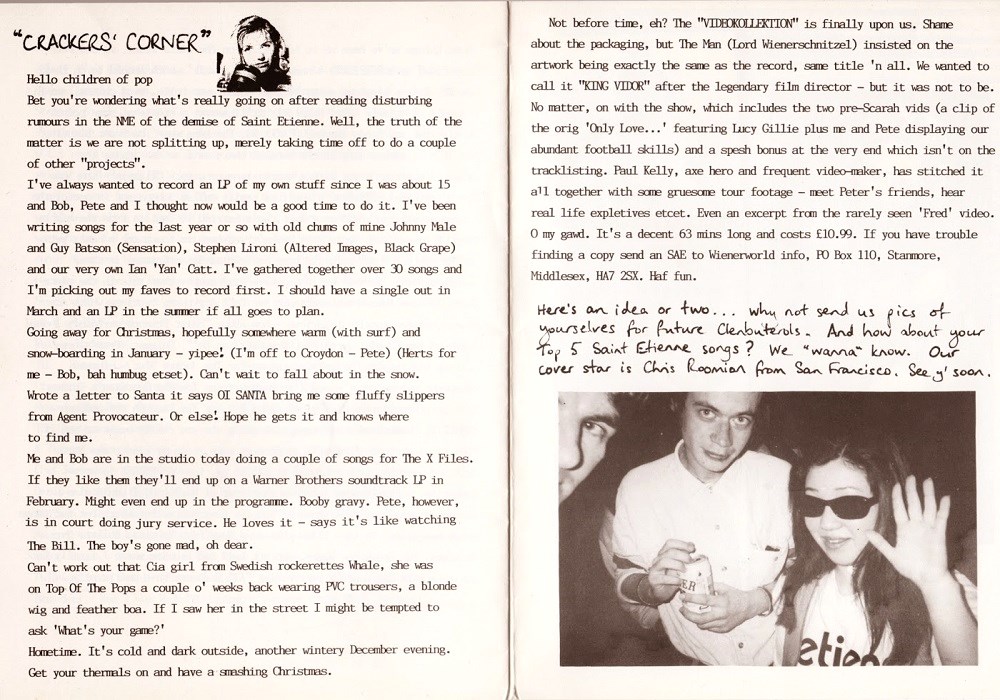 "CRACKERS' CORNER"
Hello children of pop
Bet you're wondering what's really going on after reading disturbing
rumours in the NME of the demise of Saint Etienne. Well, the truth of the
matter is we are not splitting up, merely taking time off to do a couple
of other "projects".
I've always wanted to record an LP of my own stuff since I was about 15
and Bob, Pete and I thought now would be a good time to do it. I've been
writing songs for the last year or so with old chums of mine Johnny Male
and Guy Batson (Sensation), Stephen Lironi (Altered Images, Black Grape)
and our very own Ian 'Yan' Catt. I've gathered together over 30 songs and
I'm picking out my faves to record first. I should have a single out in
March and an LP in the summer if all goes to plan.
Going away for Christmas, hopefully somewhere warm (with surf) and
snow-boarding in January - yipee! (I'm off to Croydon - Pete) (Herts for
me - Bob, bah humbug etset). Can't wait to fall about in the snow.
Wrote a letter to Santa it says OI SANTA bring me some fluffy slippers
from Agent Provocateur. Or else! Hope he gets it and knows where
to find me.
Me and Bob are in the studio today doing a couple of songs for The X Files.
If they like them they'll end up on a Warner Brothers soundtrack LP in
February. Might even end up in the programme. Booby gravy. Pete, however,
is in court doing jury service. He loves it - says it's like watching
The Bill. The boy's gone mad, oh dear.
Can't work out that Cia girl from Swedish rockerettes Whale, she was
on Top Of The Pops a couple o' weeks back wearing PVC trousers, a blonde
wig and feather boa. If I saw her in the street I might be tempted to
ask 'What's your game?'
Hometime. It's cold and dark outside, another wintery December evening.
Get your thermals on and have a smashing Christmas.
Not before time, eh? The "VIDEOKOLLEKTION" is finally upon us. Shame
about the packaging, but The Man (Lord Wienerschnitzel) insisted on the
artwork being exactly the same as the record, same title 'n all. We wanted to
call it "KING VIDOR" after the legendary film director - but it was not to be.
No matter, on with the show, which includes the two pre-Scarah vids (a clip of
the orig 'Only Love...' featuring Lucy Gillie plus me and Pete displaying our
abundant football skills) and a spesh bonus at the very end which isn't on the
tracklisting. Paul Kelly, axe hero and frequent video-maker, has stitched it
all together with some gruesome tour footage - meet Peter's friends, hear
real life expletives etcet. Even an excerpt from the rarely seen 'Fred' video.
O my gawd. It's a decent 63 mins long and costs £10.99. If you have trouble
finding a copy send an SAE to Wienerworld info, PO Box 110, Stanmore,
Middlesex, HA7 2SX. Haf fun.
Here's an idea or two... why not send us pics of
yourselves for future Clenbuterols. And how about your
Top 5 Saint Etienne songs? We "wanna" know. Our
cover star is Chris Roomian from San Francisco. See y' soon.
ER
etien